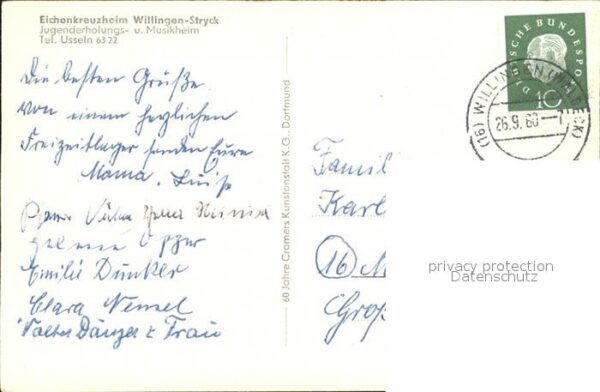 Eichenkreuzheim Willingen-Stryck
Jugenderholungs- u. Musikheim
Tel. Usseln 63 22
Die besten Grüße
von einem herzlichen
Freizeitlager senden Eure
Mama, Luise
Pfarrer
Helene
Emilie Dunker
Clara Wensel
Walter Dänzer & Frau
60 Jahre Cramers Kunstanstalt K.G., Dortmund
DEUTSCHE BUNDESPO
10
(16) WILLINGEN (WALDECK)
26.9.60-7
Famil
Karl
(16) M
Groß
privacy protection
Datenschutz